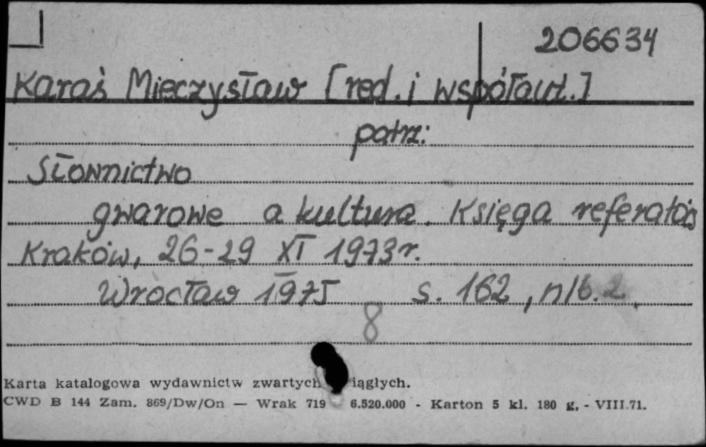 206634
Karaś Mieczysław [red. i współaut.]
patrz:
Słownictwo
gwarowe a kultura. Księga referatów
Kraków, 26-29 XI 1973 r.
Wrocław 1975 s. 162, nlb. 2.
8
Karta katalogowa wydawnictw zwartych ciągłych.
CWD B 144 Zam. 869/Dw/On — Wrak 719 6.520.000 - Karton 5 kl. 180 g. - VIII.71.